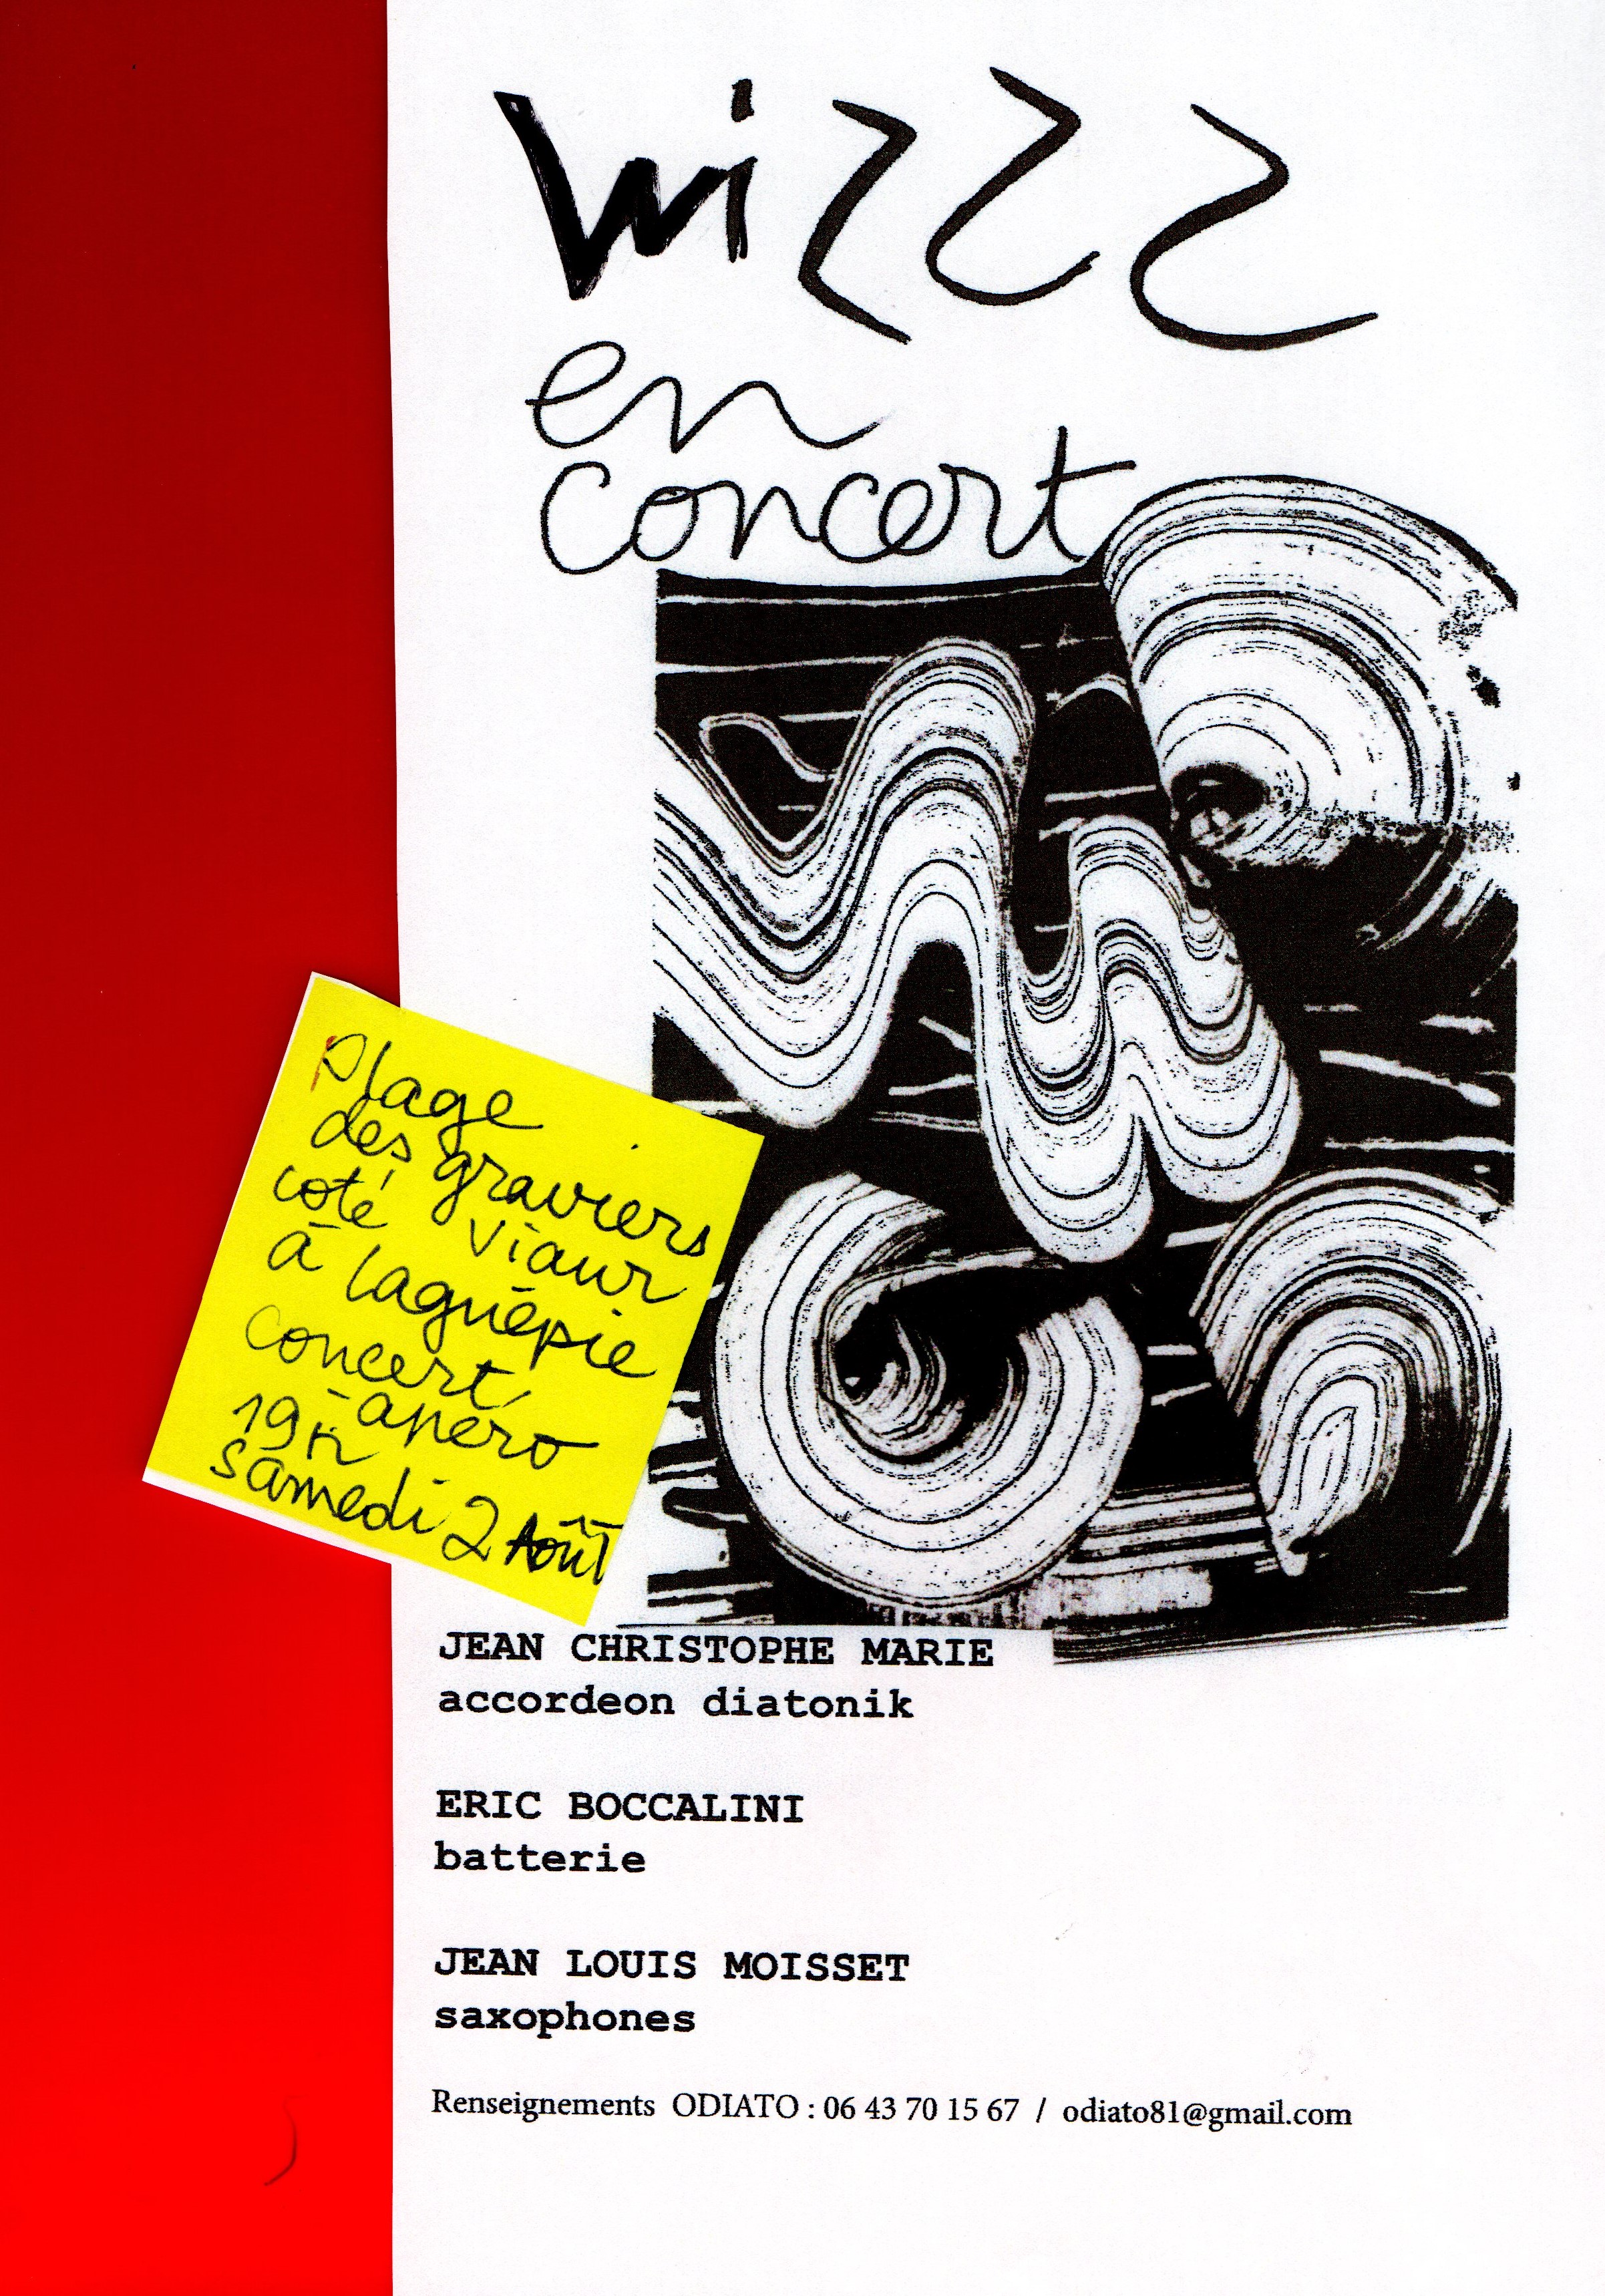 wizzz
en
concert
Plage
des graviers
coté viaur
à laguépie
concert
-apéro
19h
samedi 2 Août
JEAN CHRISTOPHE MARIE
accordeon diatonik
ERIC BOCCALINI
batterie
JEAN LOUIS MOISSET
saxophones
Renseignements ODIATO : 06 43 70 15 67 / odiato81@gmail.com